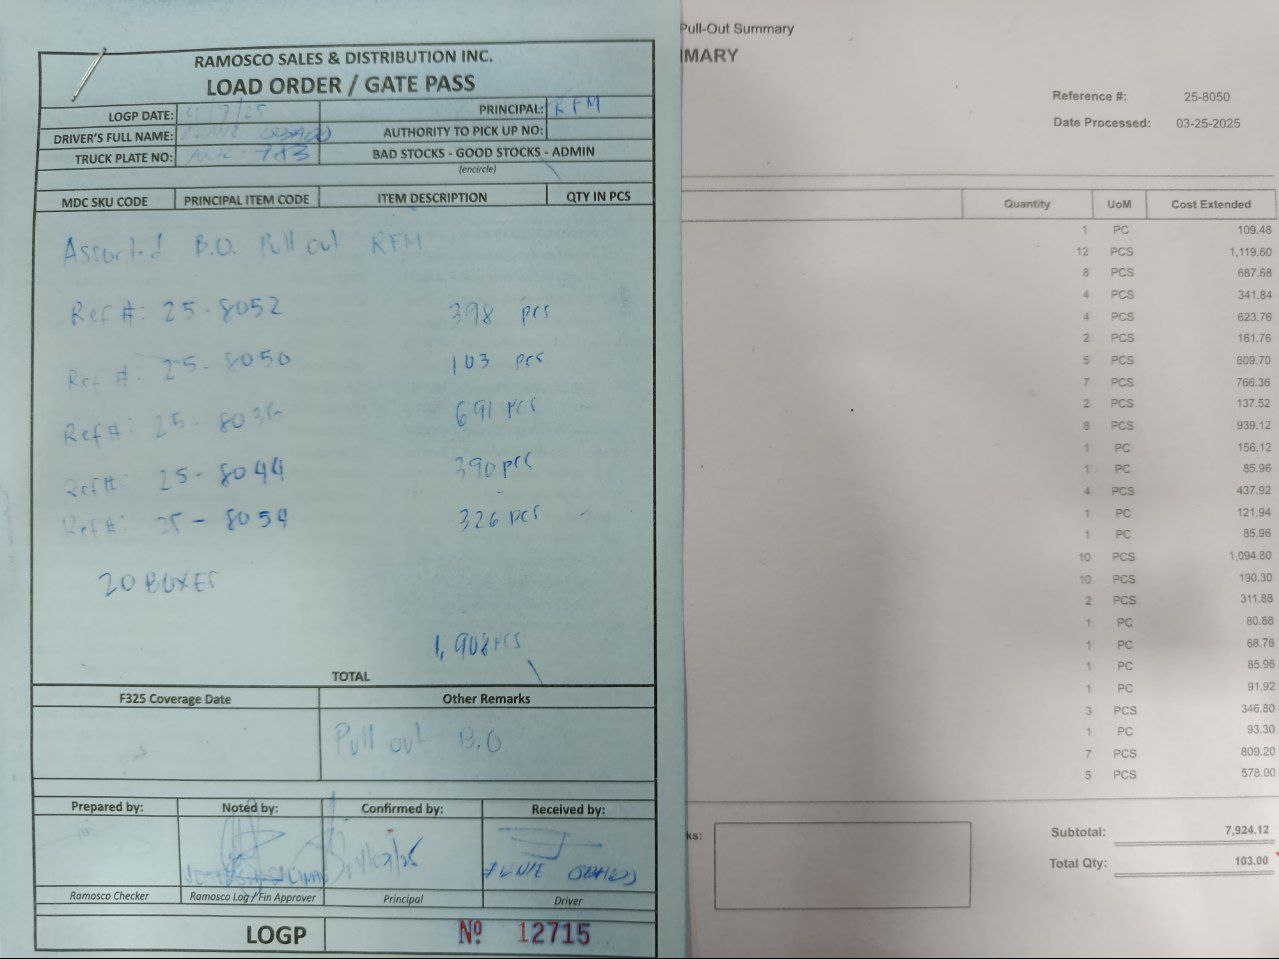 RAMOSCO SALES & DISTRIBUTION INC.
LOAD ORDER / GATE PASS
LOGP DATE: 4/7/25 PRINCIPAL: RFM
DRIVER'S FULL NAME: AUTHORITY TO PICK UP NO:
TRUCK PLATE NO: 783 BAD STOCKS - GOOD STOCKS - ADMIN
(encircle)
MDC SKU CODE PRINCIPAL ITEM CODE ITEM DESCRIPTION QTY IN PCS
Assorted B.O. Pull out RFM
Ref #: 25-8052 398 pcs
Ref #: 25-8050 103 pcs
Ref #: 25-8036 691 pcs
Ref #: 25-8044 390 pcs
Ref #: 25-8054 326 pcs
20 BOXES
1,908 PCS
TOTAL
F325 Coverage Date Other Remarks
Pull out B.O
Prepared by: Noted by: Confirmed by: Received by:
Ramosco Checker Ramosco Log / Fin Approver Principal Driver
LOGP Nº 12715
Pull-Out Summary
MARY
Reference #: 25-8050
Date Processed: 03-25-2025
Quantity UoM Cost Extended
1 PC 109.48
12 PCS 1,119.60
8 PCS 687.68
4 PCS 341.84
4 PCS 623.76
2 PCS 161.76
5 PCS 609.70
7 PCS 766.36
2 PCS 137.52
8 PCS 939.12
1 PC 156.12
1 PC 85.96
4 PCS 437.92
1 PC 121.94
1 PC 85.96
10 PCS 1,094.80
10 PCS 190.30
2 PCS 311.88
1 PC 80.88
1 PC 68.76
1 PC 85.96
1 PC 91.92
3 PCS 346.80
1 PC 93.30
7 PCS 809.20
5 PCS 578.00
ks:
Subtotal: 7,924.12
Total Qty: 103.00